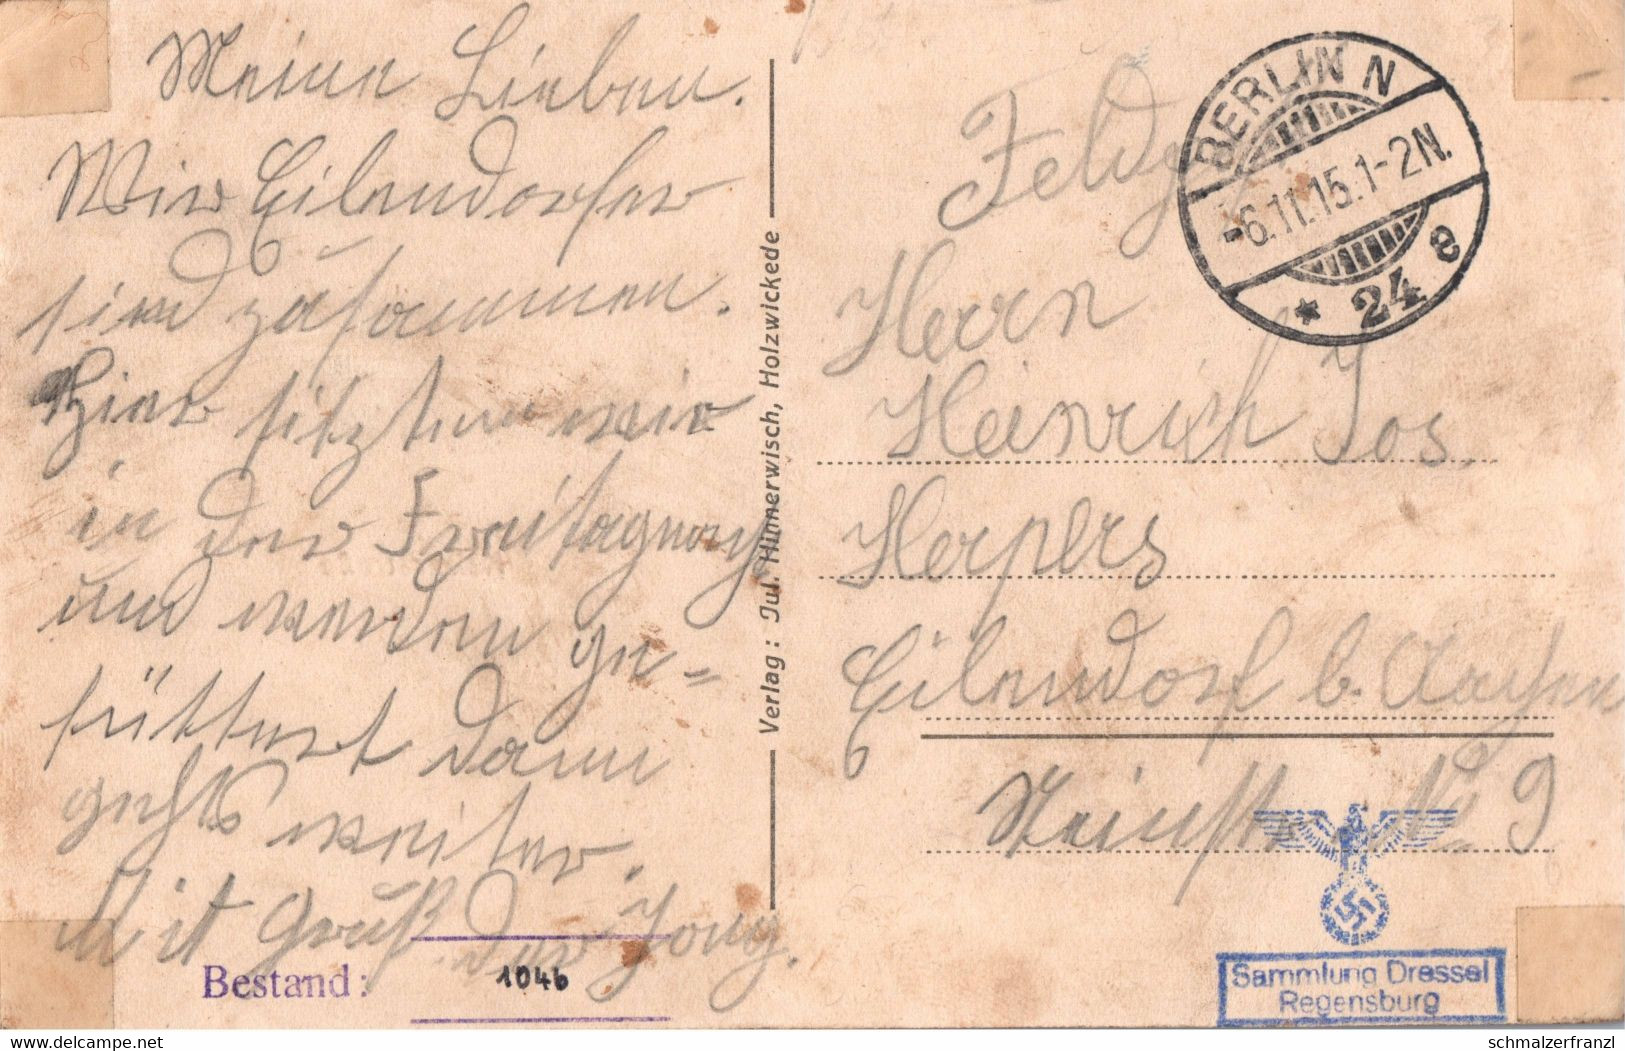 Meine Lieben.
Wir Eilendorfer
sind zusammen.
Hier sitzten wir
in der
und werden ge=
füttert dann
gehts weiter.
Mit Gruß.
Bestand: 1046
Verlag: Jul. Hinnerwisch, Holzwickede
BERLIN N
-6.11.15.1-2N.
* 24 e
Herrn
Heinrich Jos.
Herpers
Eilendorf b. Aachen
9
Sammlung Dressel
Regensburg
www.delcampe.net
schmalzerfranzl